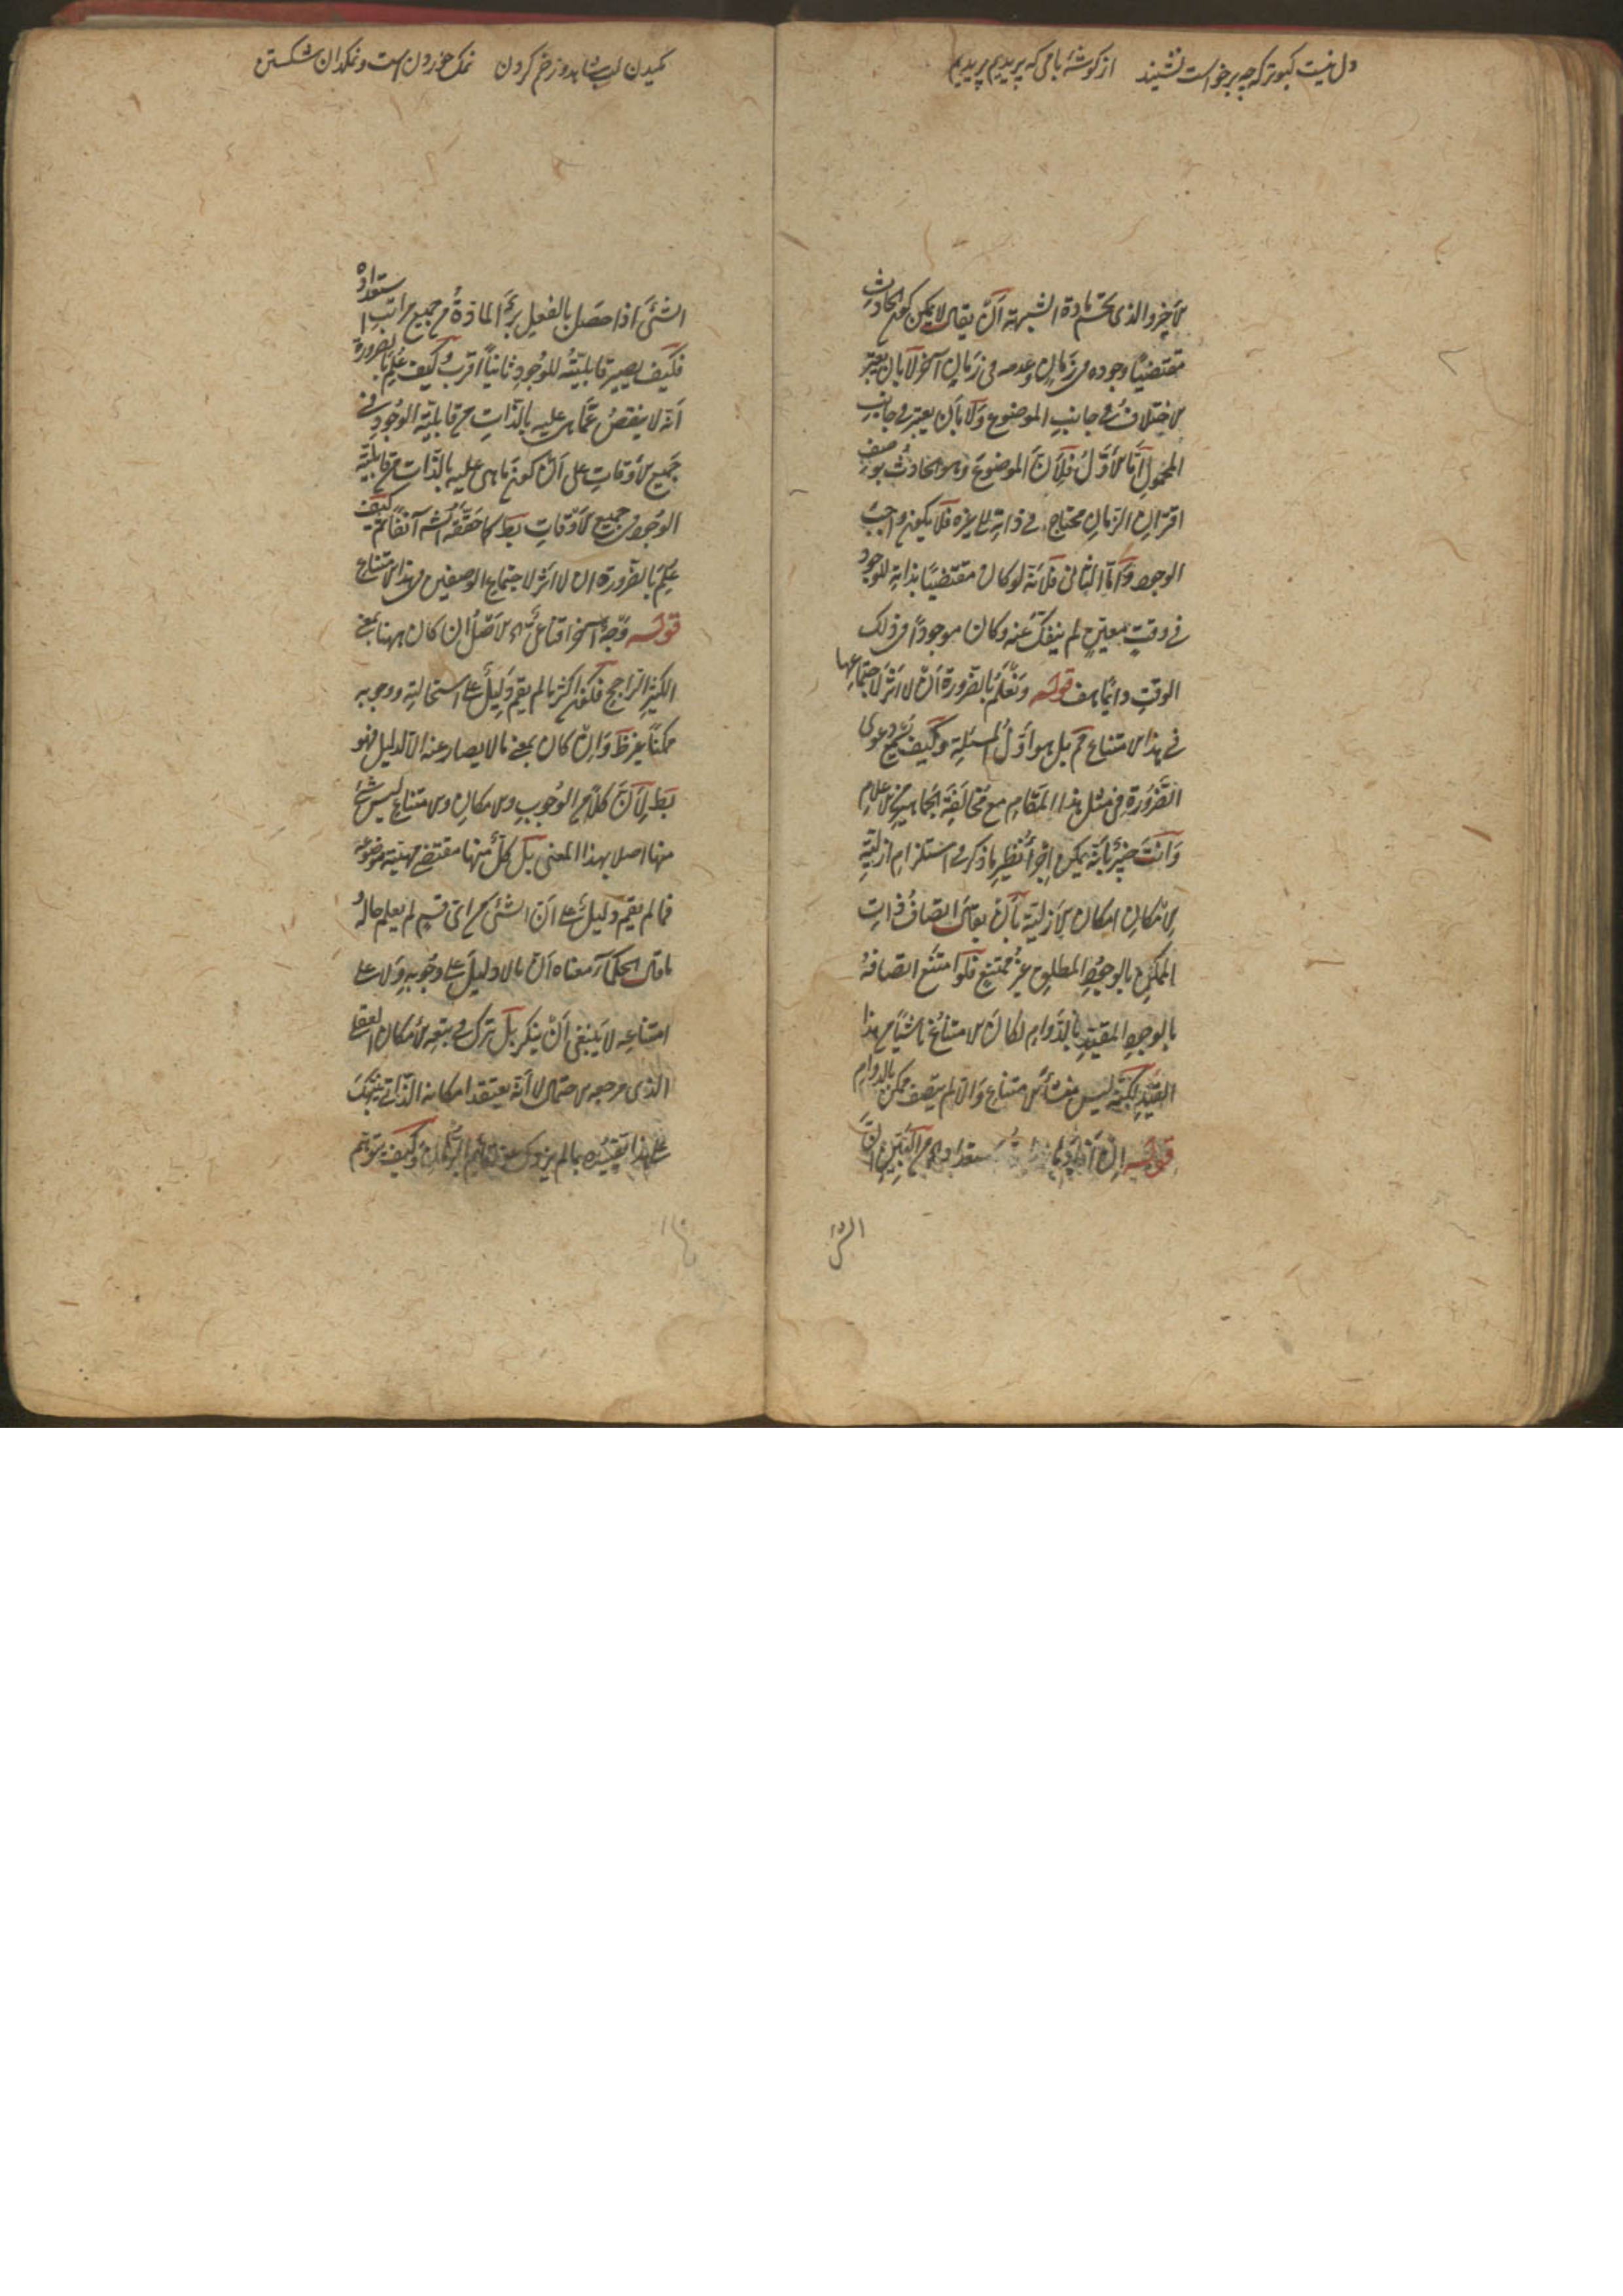 دل نیست کبوتر که چو برخواست نشیند از کوشهٔ بامی که پریدیم پریدیم
الاخیر والذی یحسم مادة الشبهة ان یقال لا یمکن کون الحادث
مقتضیا وجوده فی زمان وعدمه فی زمان آخر لا بان یعتبر
الاختلاف فی جانب الموضوع ولا بان یعتبر فی جانب
المحمول اما الاول فلان الموضوع وهو الحادث بوصف
اقتران الزمان محتاج فی ذاته الی غیره فلا یکون واجب
الوجود واما الثانی فلانه لو کان مقتضیا بذاته للوجود
فی وقت معین لم ینفک عنه وکان موجودا فی ذلک
الوقت دائما هف قوله ونعلم بالضرورة ان لا اثر لاجتماعها
فی هذا الامتناع مم بل هو اول المسئلة وکیف یسمع دعوی
الضرورة فی مثل هذا المقام مع مخالفة الجماهیر من الاعلام
وانت خبیر بانه یمکن اجراء نظیر ما ذکر فی استلزام ازلیة
الامکان امکان الازلیة بان یقال اتصاف ذات
الممکن بالوجود المطلق غیر ممتنع فلو امتنع اتصافه
بالوجود المقید بالدوام لکان الامتناع ناشیا من هذا
القید لکنه لیس منشأ الامتناع والا لم یتصف ممکن بالدوام
قوله ان افادها استعداد من القبیل
الش
مکیدن لب شاهد و زخم کردن نمک خوردن است و نمکدان شکستن
الشئ اذا حصل بالفعل برئ المادة من جمیع مراتب استعداده
فکیف یصیر قابلیته للوجود ثانیا اقرب وکیف علم بالضرورة
انه لا ینقص عما هی علیه بالذات من قابلیة الوجود فی
جمیع الاوقات علی ان کون ما هی علیه بالذات من قابلیة
الوجود فی جمیع الاوقات بط کما حققه الش آنفا ثم کیف
علم بالضرورة ان لا اثر لاجتماع الوصفین فی هذا الامتناع
قوله وجه آخر اقناعی الاصل ان کان ههنا بمعنی
الکثیر الراجح فکون اکثر ما لم یقم دلیل علی استحالته ووجوبه
ممکنا غیر ظ وان کان بمعنی ما لا یصار عنه الا لدلیل فهو
بط لان کلا من الوجوب والامکان والامتناع لیس شئ
منها اصلا بهذا المعنی بل کل منها مقتضی مهیة موضوعه
فما لم یقم دلیل علی ان الشئ من ای قسم لم یعلم حاله
ما قال الحکماء معناه ان ما لا دلیل علی وجوبه ولا علی
امتناعه لا ینبغی ان ینکر بل ترک فی بقعه الامکان العقلی
الذی مرجعه الاحتمال لا انه یعتقد امکانه الذاتی ینبهک
علی هذا تقییده بما لم یزدک عنه قائم البرهان وکیف یتوهم